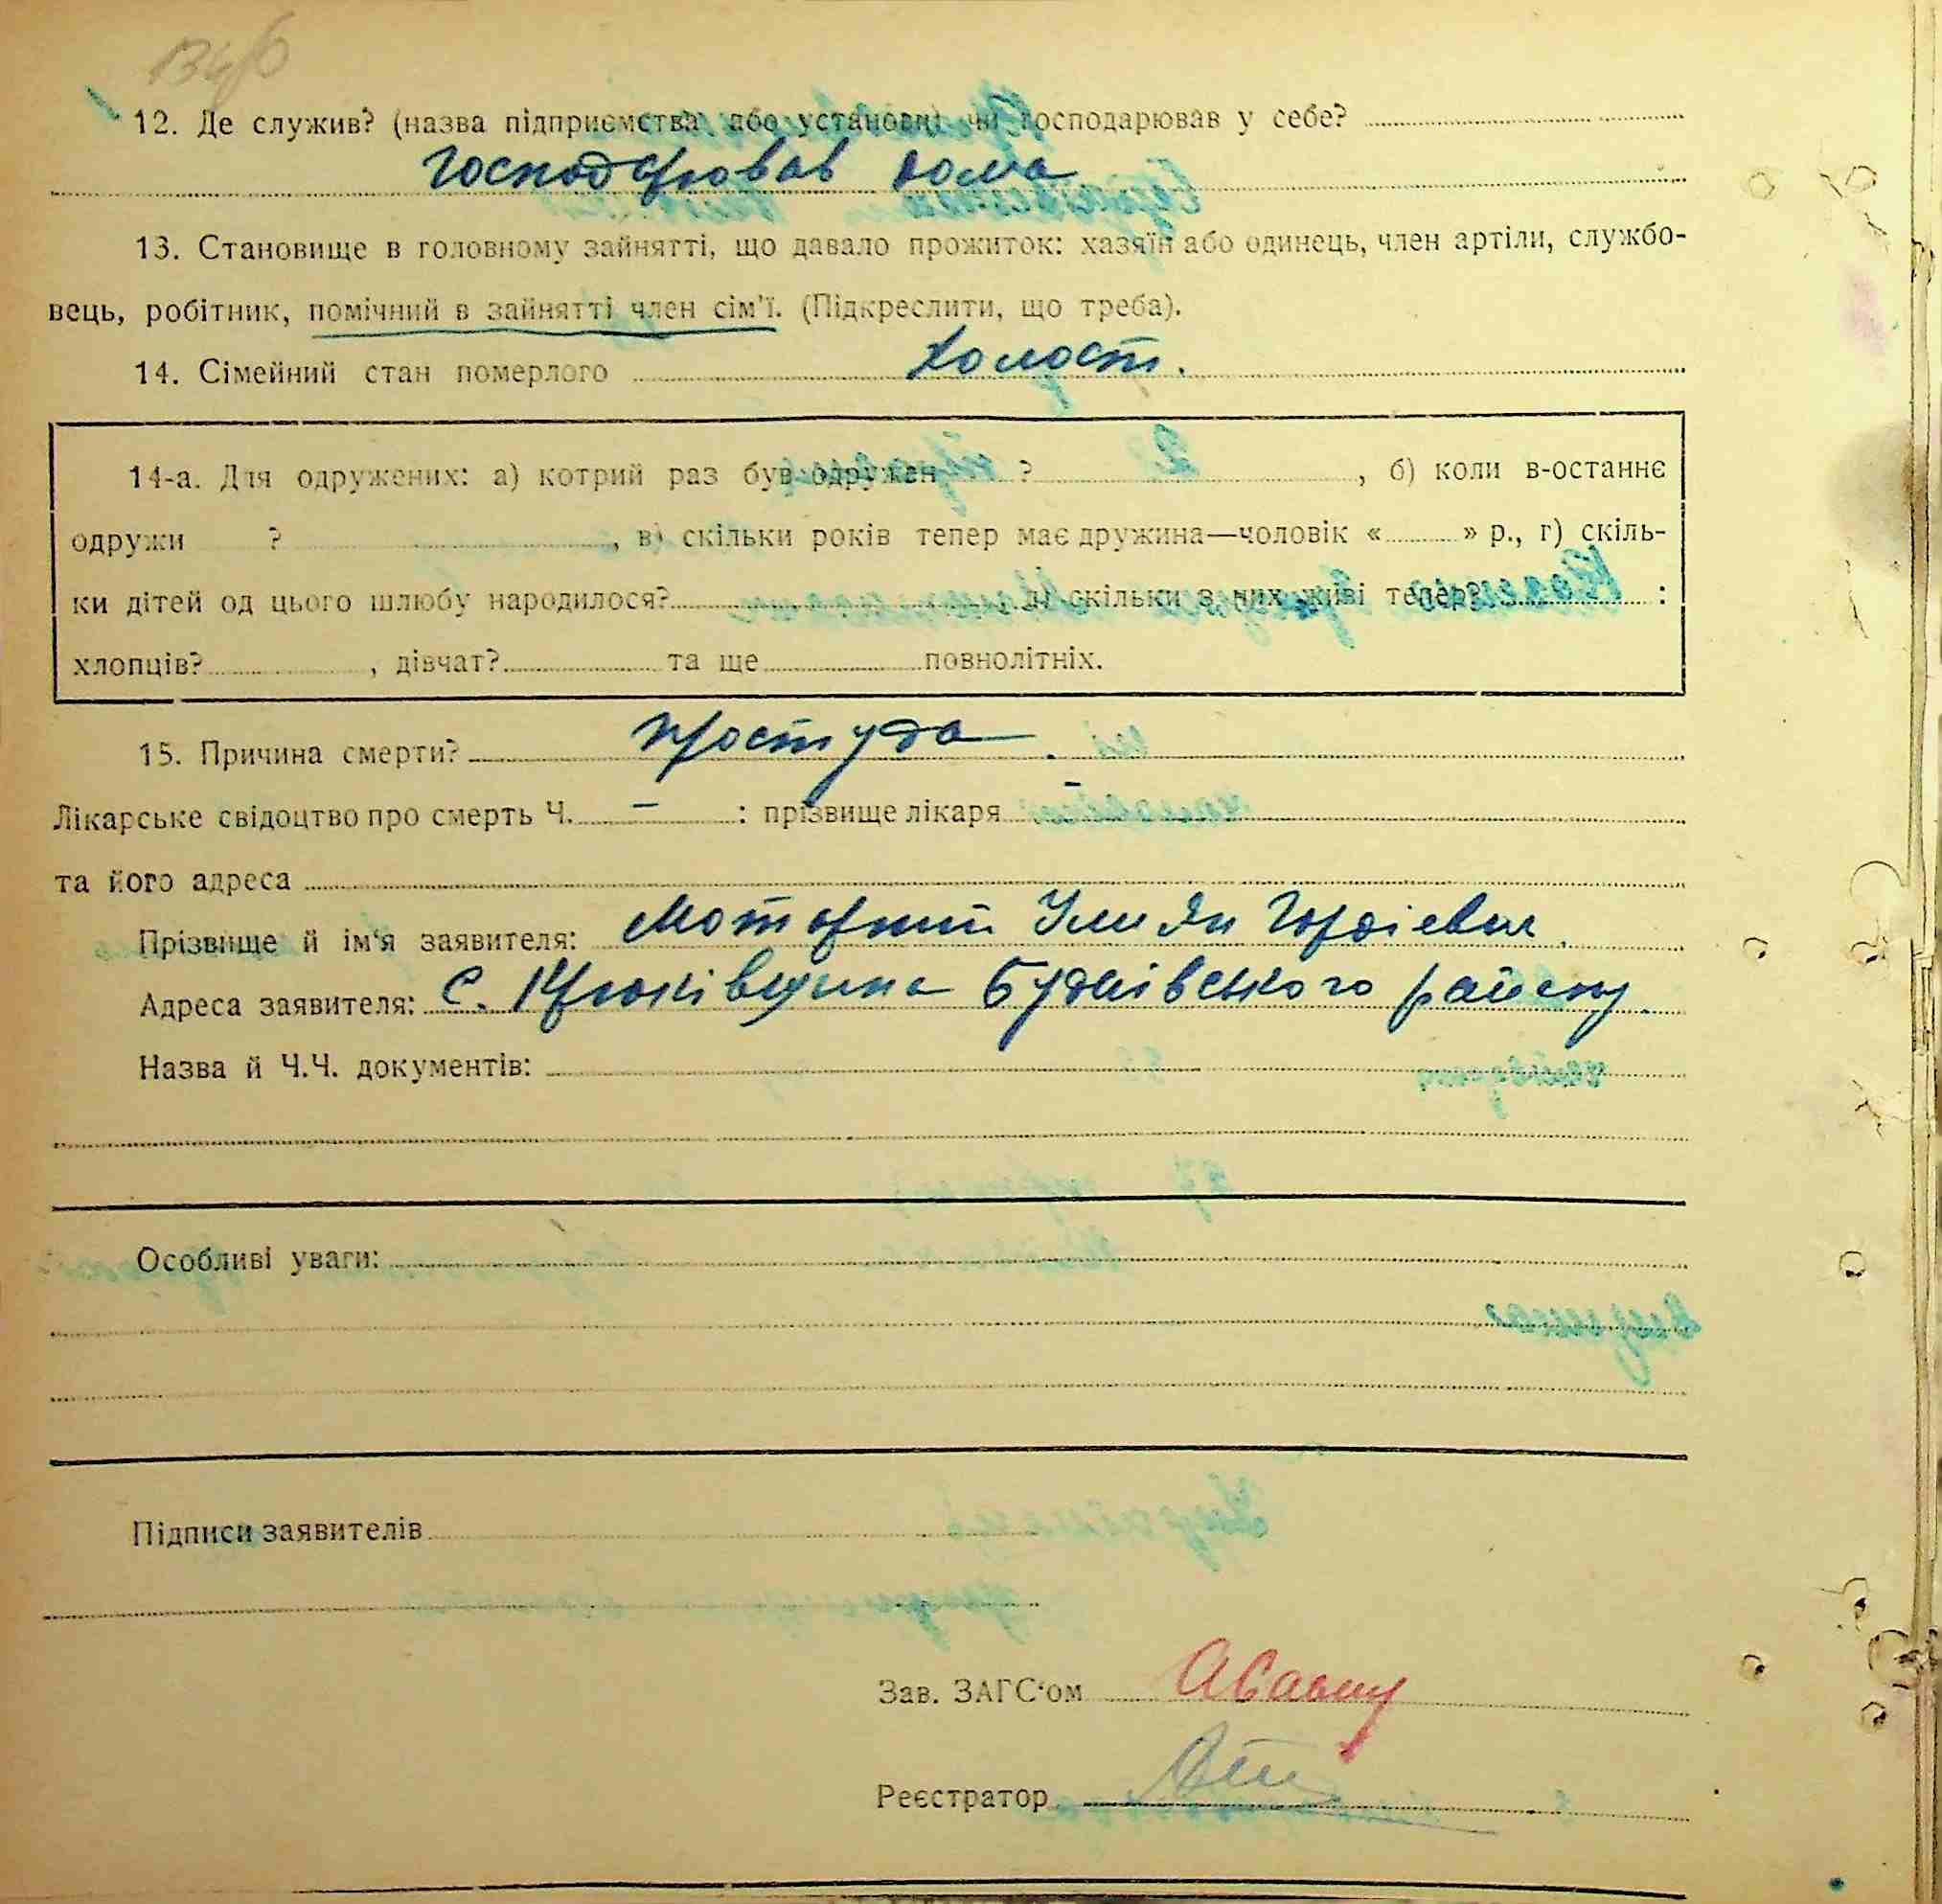 12. Де служив? (назва підприємства або установи) чи господарював у себе?
Господарював дома
13. Становище в головному зайнятті, що давало прожиток: хазяїн або одинець, член артіли, службо-
вець, робітник, помічний в зайнятті член сім'ї. (Підкреслити, що треба).
14. Сімейний стан померлого холост.
14-а. Для одружених: а) котрий раз був одружен ? , б) коли в-останнє
одружи ? , в) скільки років тепер має дружина—чоловік « » р., г) скіль-
ки дітей од цього шлюбу народилося? д) скільки з них живі тепер? :
хлопців? , дівчат? та ще повнолітніх.
15. Причина смерти? простуда.
Лікарське свідоцтво про смерть Ч. – : прізвище лікаря –
та його адреса
Прізвище й ім'я заявителя: Моторний Умиян Гордієвич
Адреса заявителя: с. Крюківщина Будаївського району.
Назва й Ч.Ч. документів:
Особливі уваги:
Підписи заявителів
Зав. ЗАГС'ом
Реєстратор